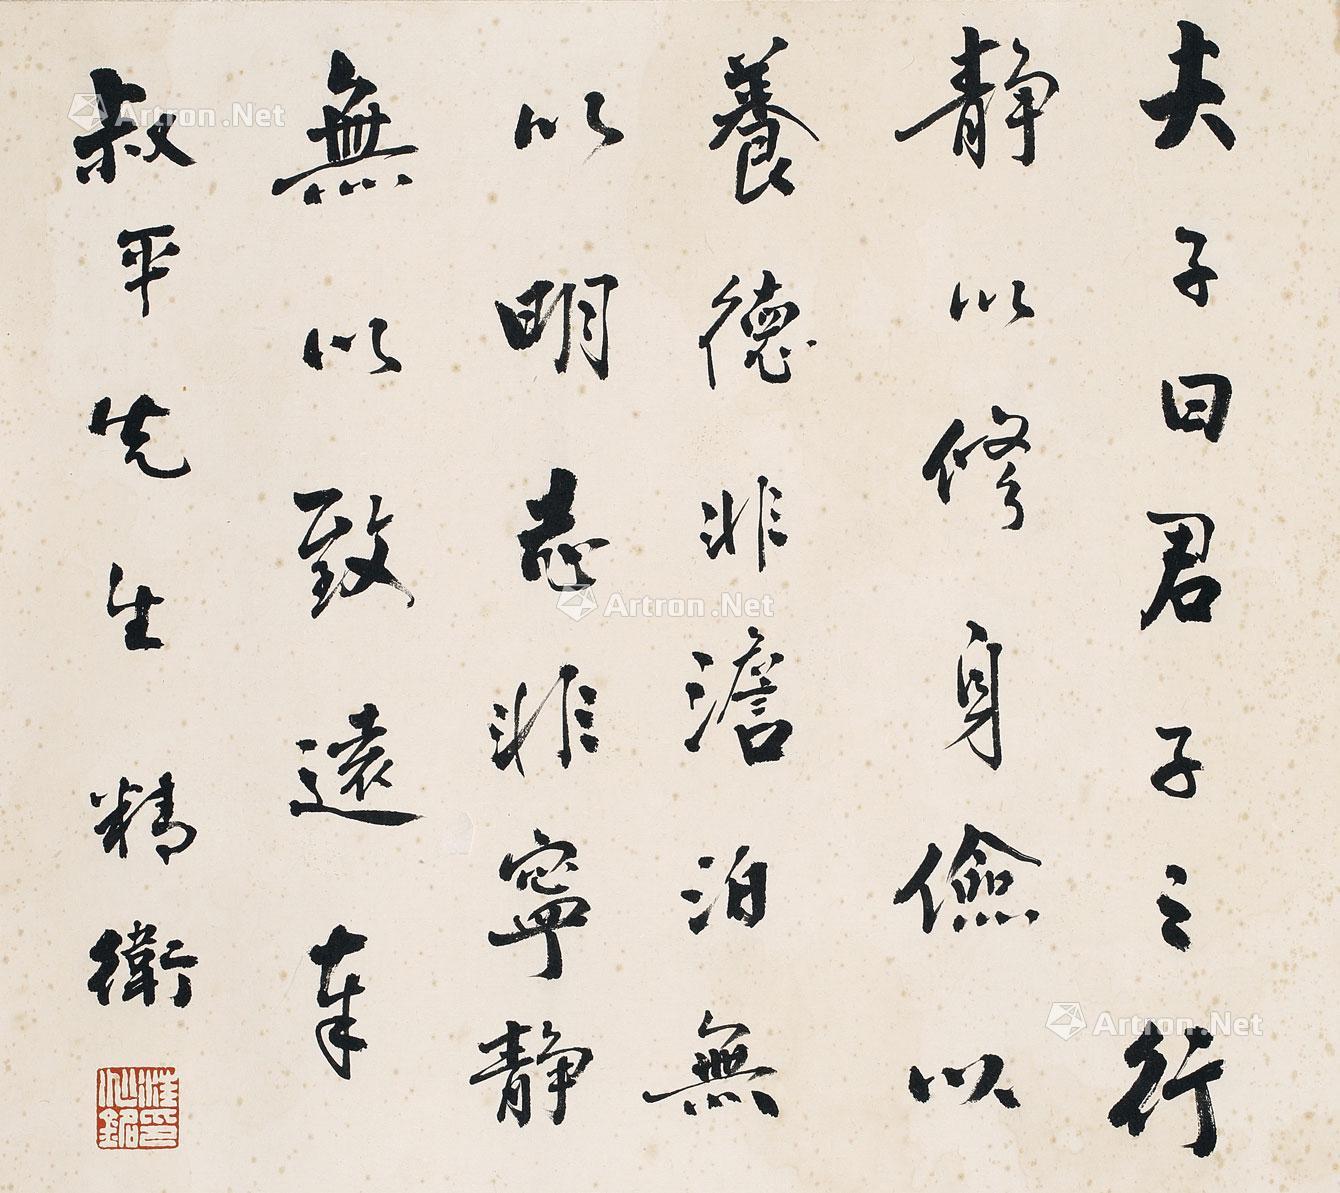 夫子曰君子之行
静以修身儉以
養德非澹泊無
以明志非寧静
無以致遠奉
叔平先生 精衛
汪兆銘印
Artron.Net
Artron.Net
Artron.Net